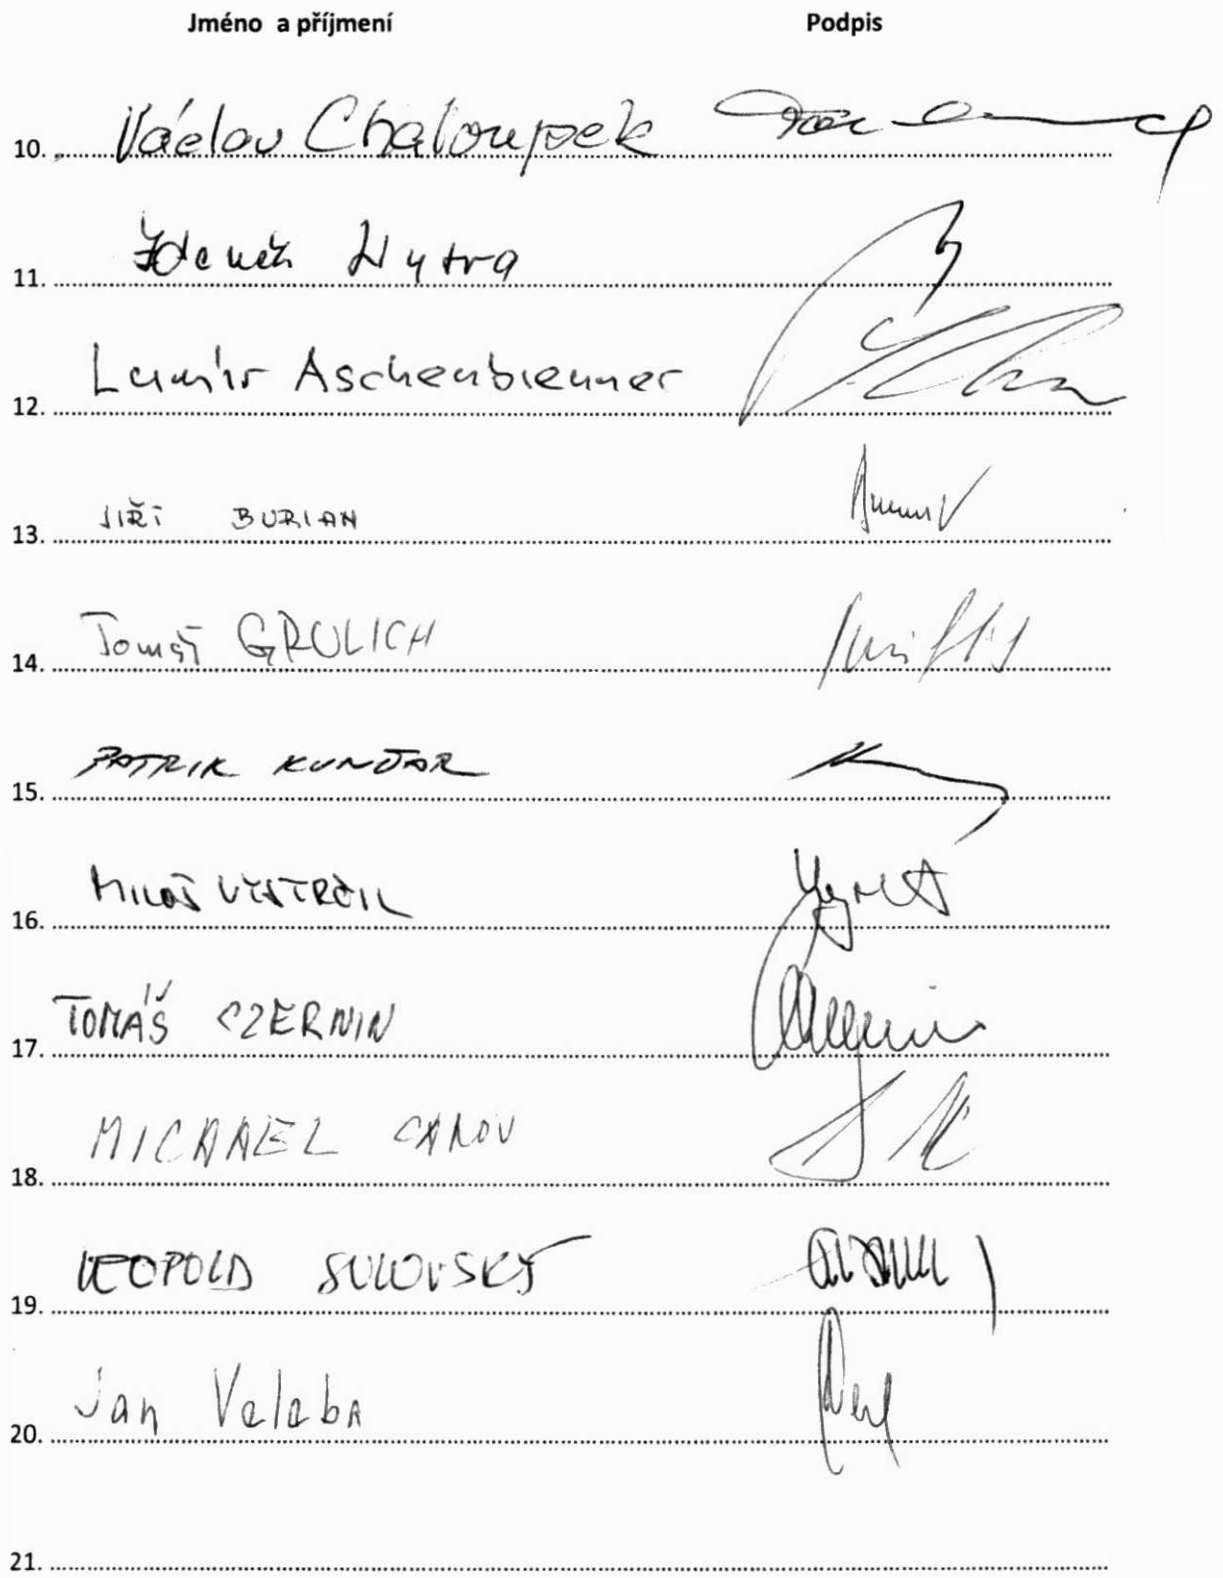 Jméno a příjmení Podpis
10. Václav Chaloupek
11. Zdeněk Nytra
12. Lumír Aschenbrenner
13. JIŘÍ BURIAN
14. Tomáš GRULICH
15. PATRIK KUNČAR
16. MILOŠ VYSTRČIL
17. TOMÁŠ CZERNIN
18. MICHAEL CANOV
19. LEOPOLD SULOVSKÝ
20. Jan Veleba
21.